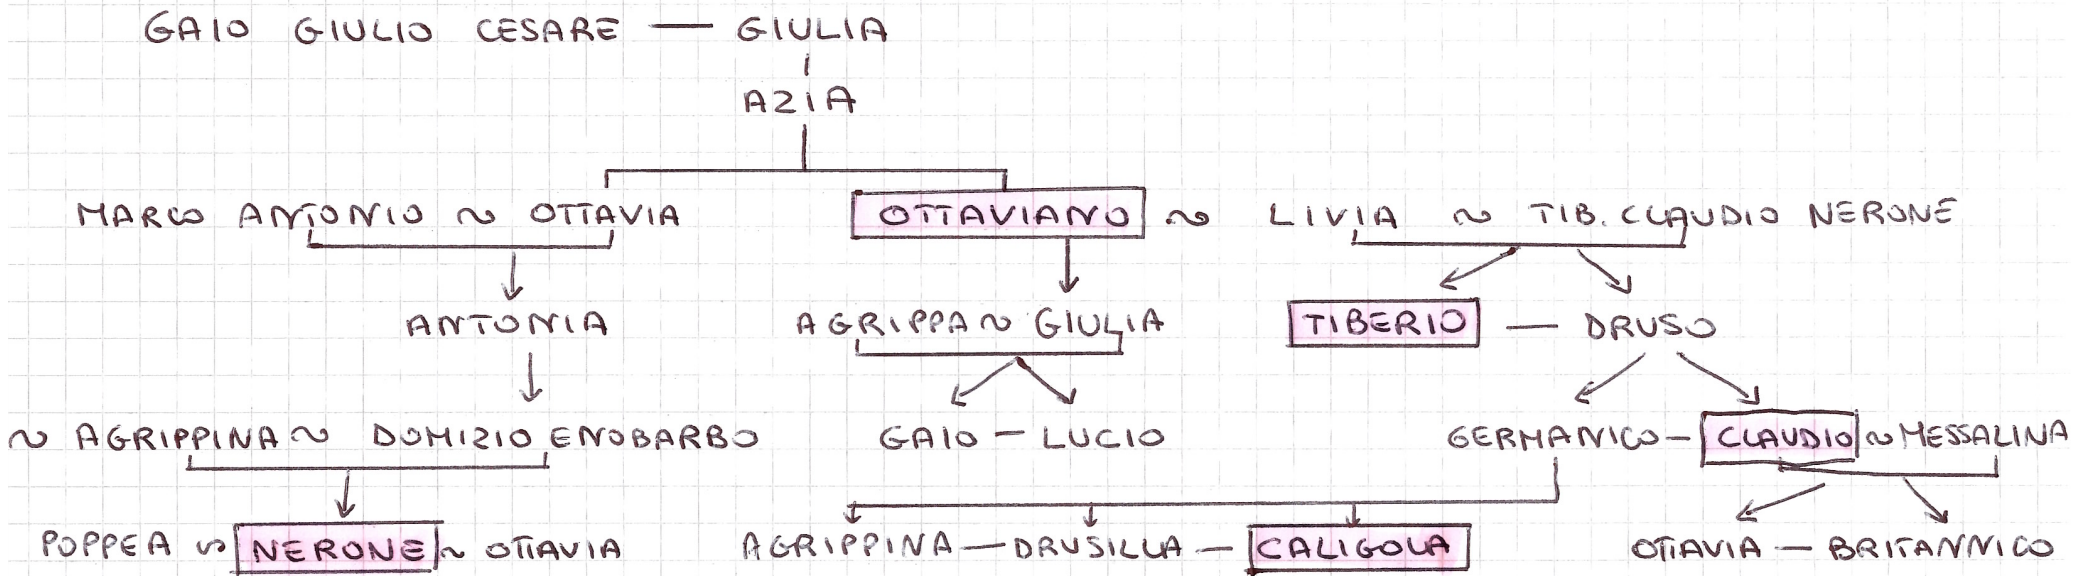 GAIO GIULIO CESARE — GIULIA
AZIA
MARCO ANTONIO ~ OTTAVIA OTTAVIANO ~ LIVIA ~ TIB. CLAUDIO NERONE
ANTONIA AGRIPPA ~ GIULIA TIBERIO — DRUSO
~ AGRIPPINA ~ DOMIZIO ENOBARBO GAIO — LUCIO GERMANICO — CLAUDIO ~ MESSALINA
POPPEA ~ NERONE ~ OTTAVIA AGRIPPINA — DRUSILLA — CALIGOLA OTTAVIA — BRITANNICO